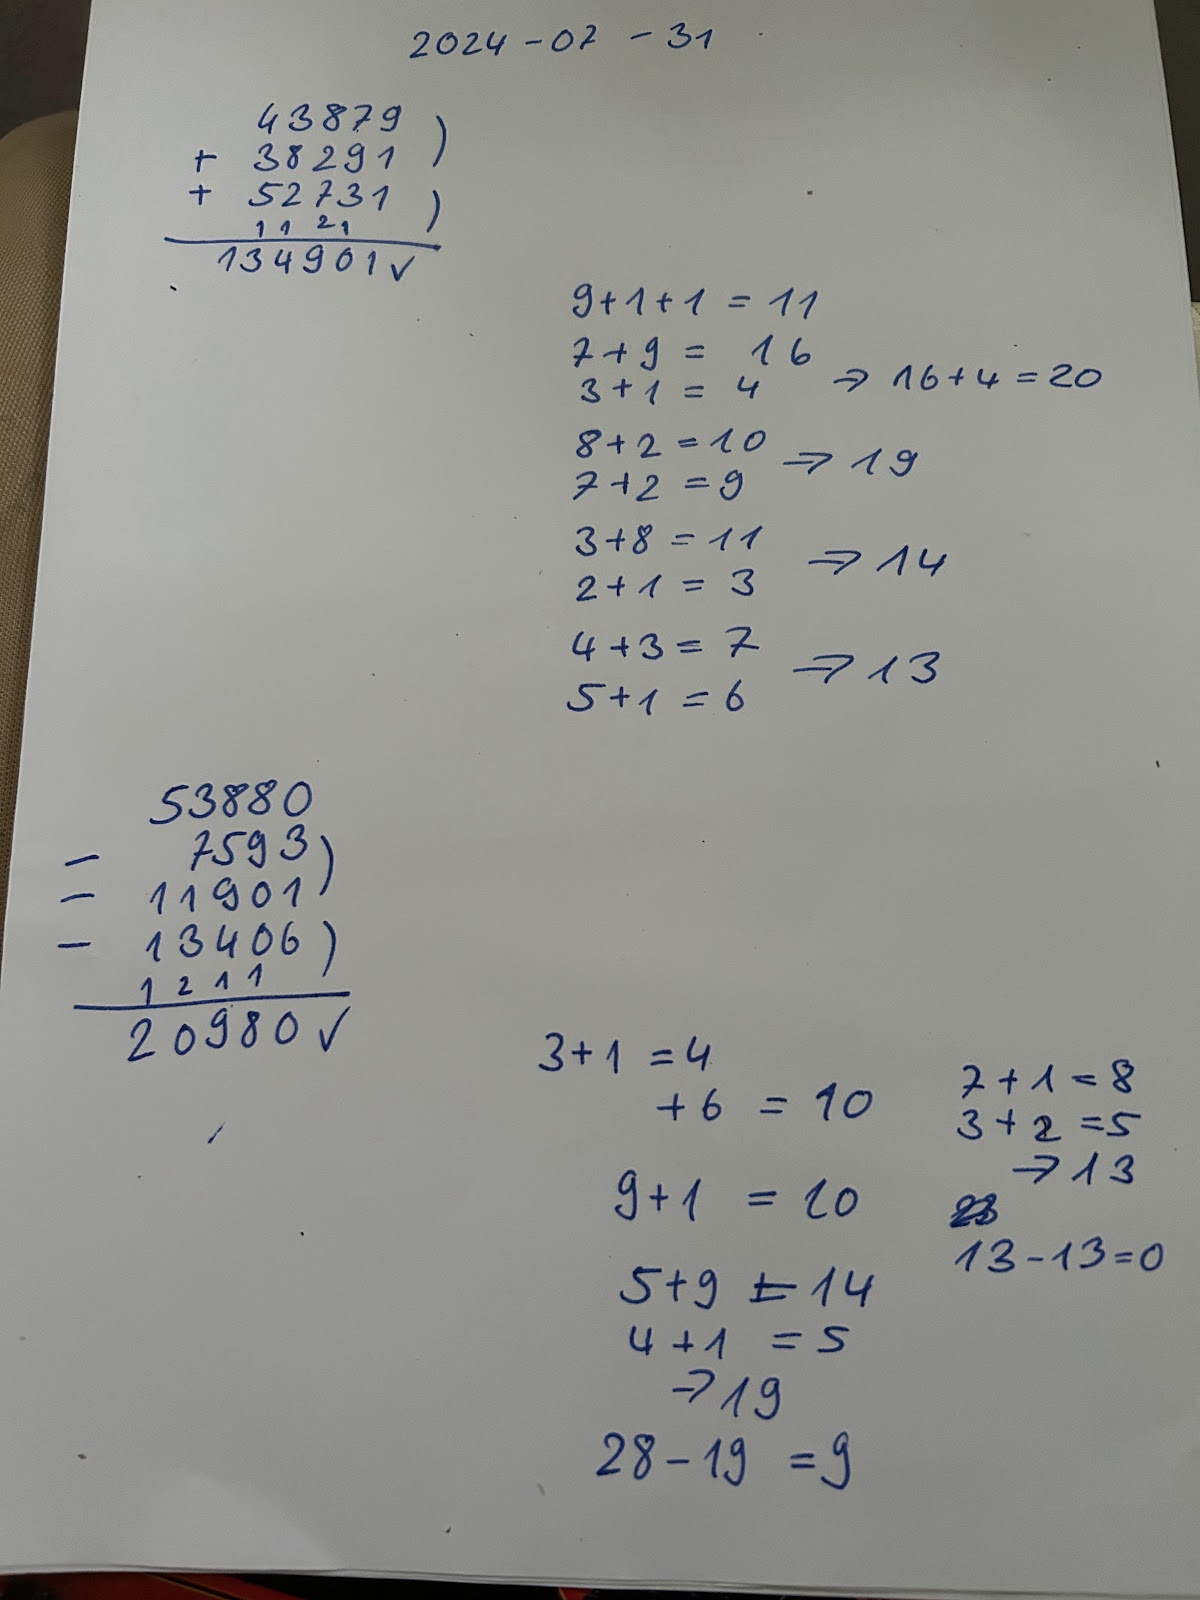 2024-07-31
43879 )
+ 38291 )
+ 52731 )
1 1 2 1 )
134901 ✓
9+1+1 = 11
7+9 = 16
3+1 = 4 ⇒ 16+4 = 20
8+2 = 10 ⇒ 19
7+2 = 9
3+8 = 11 ⇒ 14
2+1 = 3
4+3 = 7 ⇒ 13
5+1 = 6
53880
- 7593 )
- 11901 )
- 13406 )
1 2 1 1 )
20980 ✓
3+1 = 4
+6 = 10
9+1 = 10
5+9 = 14
4+1 = 5
⇒ 19
28-19 = 9
7+1 = 8
3+2 = 5
⇒ 13
13-13 = 0